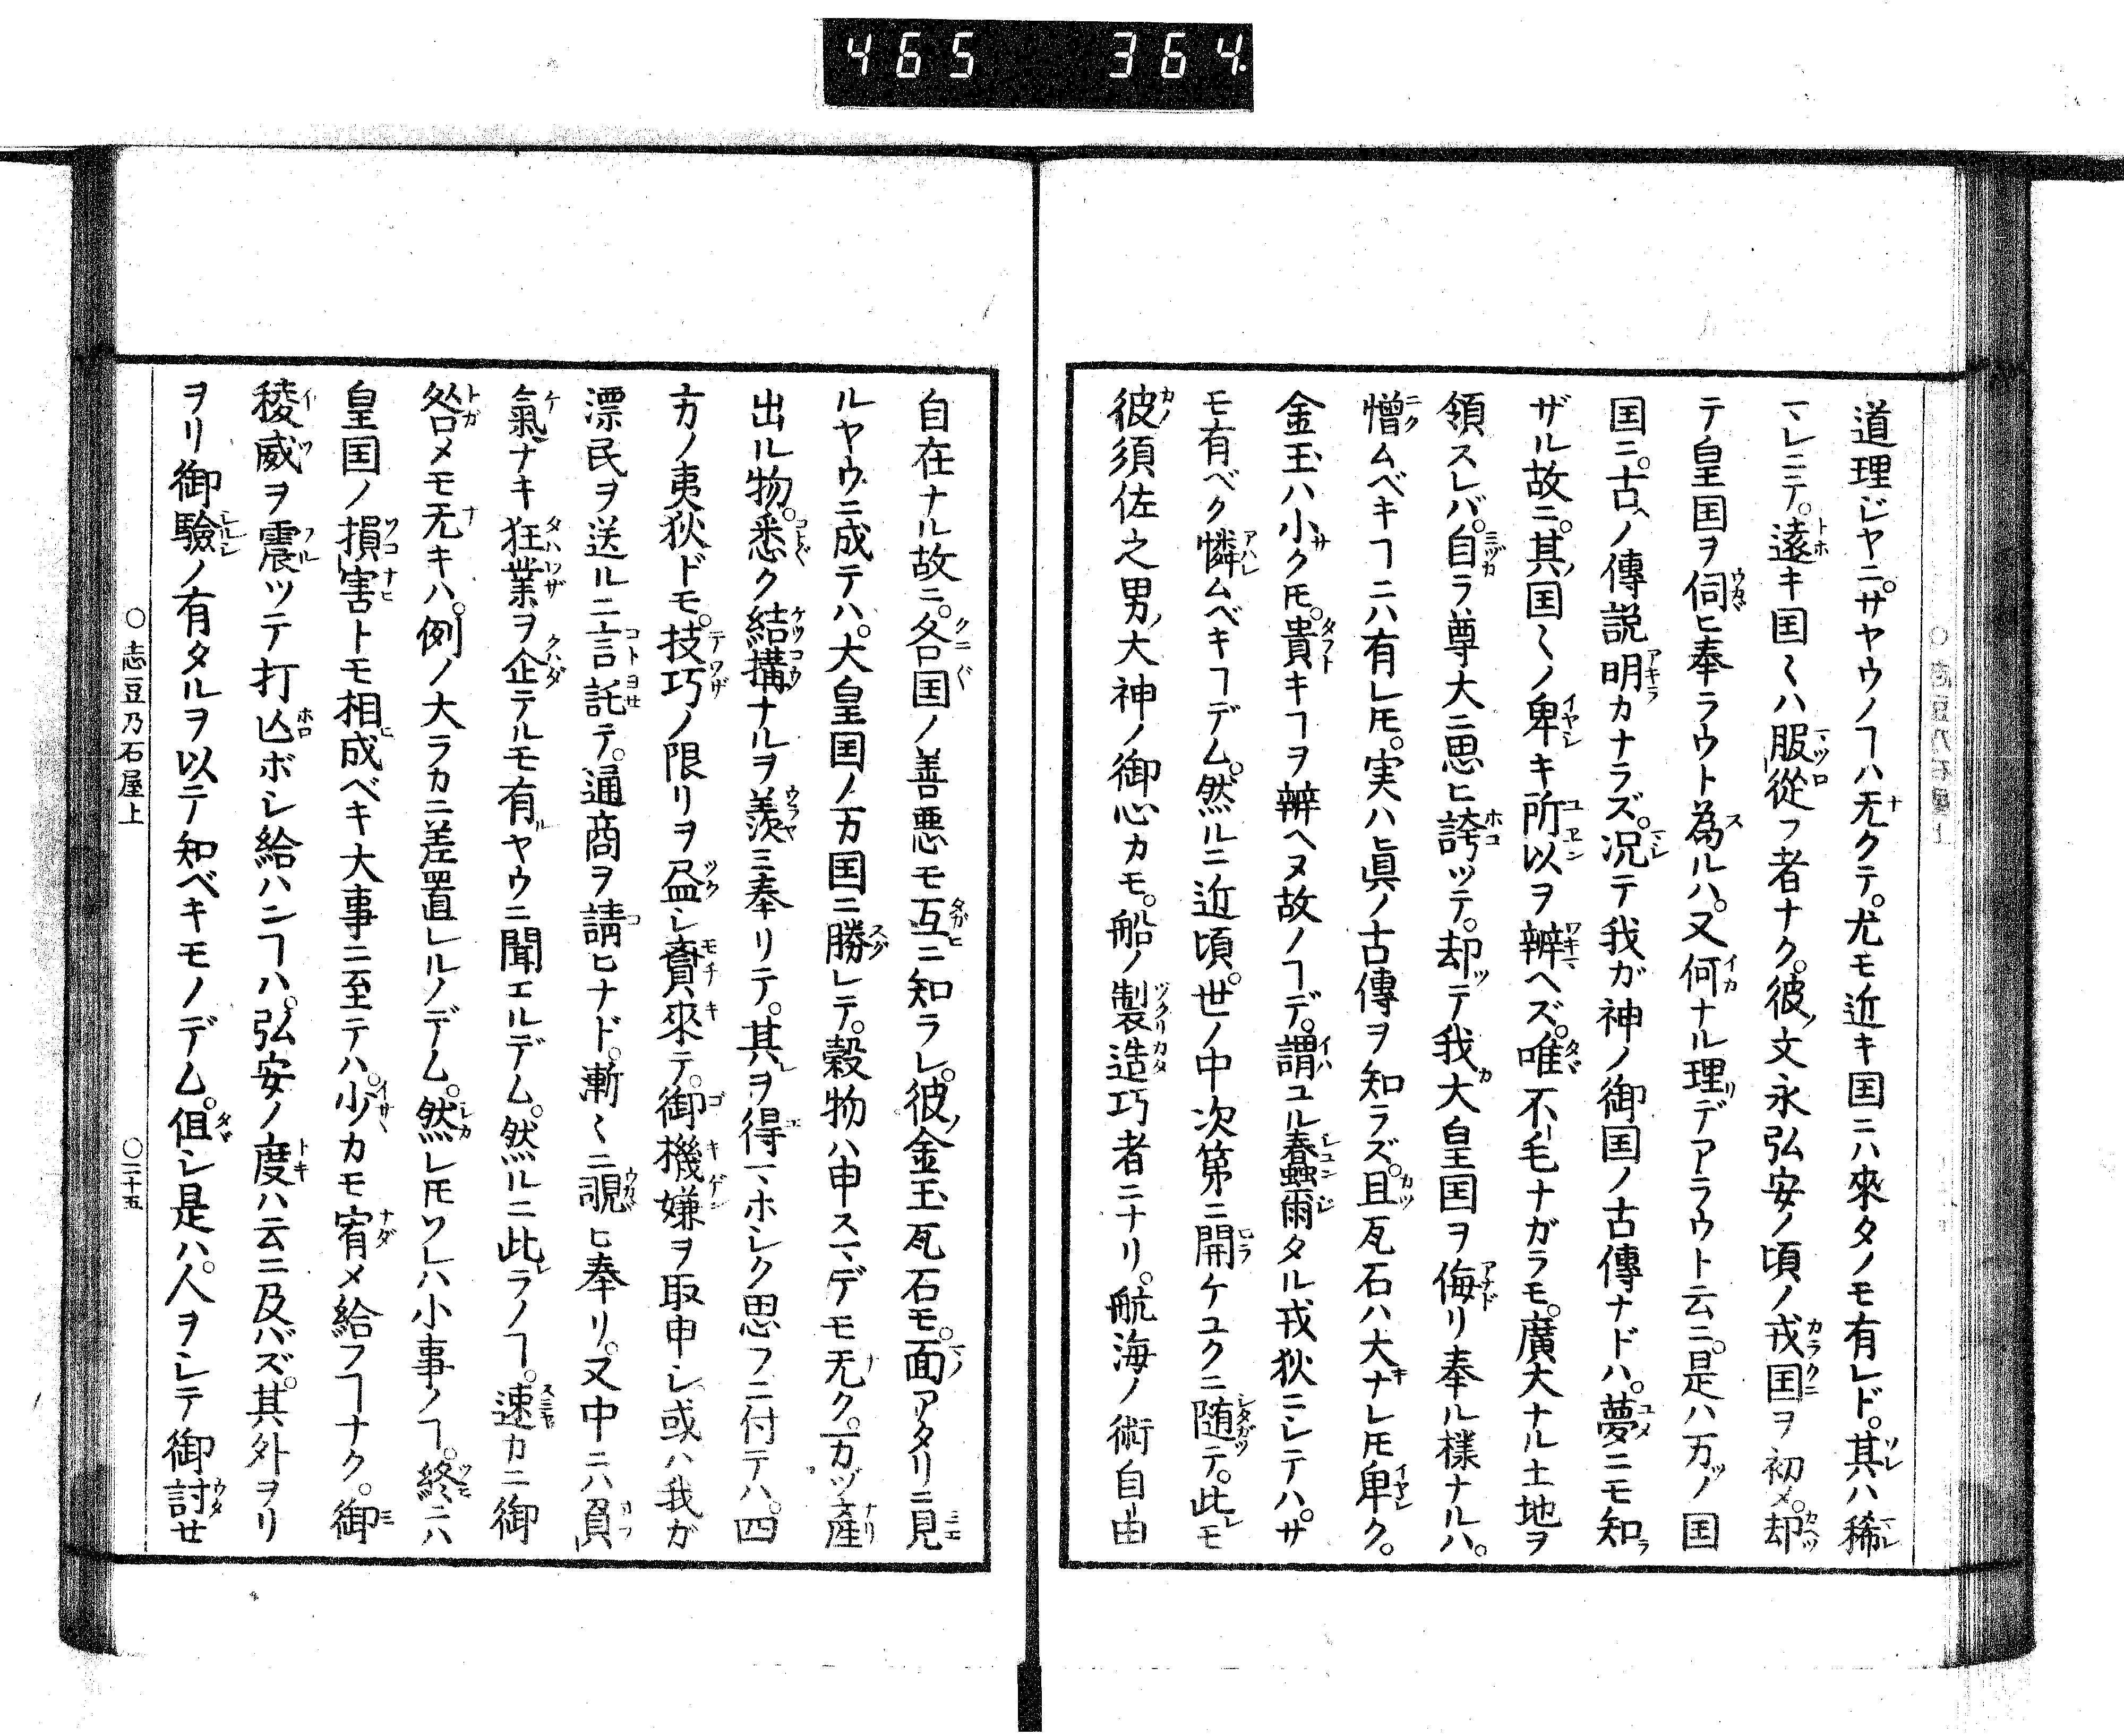 465 364.
道理ジヤニ。サヤウノヿハ无クテ。尤モ近キ国ニハ來タノモ有レド。其ハ稀
マレニテ。遠キ国〱ハ服從フ者ナク。彼ノ文永弘安ノ頃ノ戎国ヲ初メ。却
テ皇国ヲ伺ヒ奉ラウト為ルハ。又何ナル理デアラウト云ニ。是ハ万ノ国
国ニ。古ヘノ傳説明カナラズ。况テ我ガ神ノ御国ノ古傳ナドハ。夢ニモ知ラ
ザル故ニ。其ノ国〱ノ卑キ所以ヲ辨ヘズ。唯不毛ナガラモ。廣大ナル土地ヲ
領スレバ。自ラ尊大ニ思ヒ誇ツテ。却ツテ我大皇国ヲ侮リ奉ル樣ナルハ。
憎ムベキヿニハ有レ𪜈。実ハ眞ノ古傳ヲ知ラズ。且瓦石ハ大キナレ𪜈卑ク。
金玉ハ小クモ。貴キヿヲ辨ヘヌ故ノヿデ。謂ユル春蟲爾タル戎狄ニシテハ。サ
モ有ベク憐ムベキヿデム。然ルニ近頃。世ノ中次第ニ開ケユクニ随テ。此レモ
彼須佐之男ノ大神ノ御心カモ。船ノ製造巧者ニナリ。航海ノ術自由
自在ナル故ニ。各国ノ善悪モ互ニ知ラレ。彼ノ金玉瓦石モ。面アタリニ見
ルヤウニ成テハ。大皇国ノ万国ニ勝レテ。穀物ハ申スマデモ无ク。万ヅ産
出ル物。悉ク結構ナルヲ羨ミ奉リテ。其レヲ得マホシク思フニ付テハ。四
方ノ夷狄ドモ。技巧ノ限リヲ盡シ賷來テ。御機嫌ヲ取申シ。或ハ我ガ
漂民ヲ送ルニ言託テ。通商ヲ請ヒナド。漸〱ニ覗ヒ奉リ。又中ニハ負
氣ナキ狂業ヲ企テルモ有ルヤウニ聞エルデム。然ルニ此レラノヿ。速カニ御
咎メモ无キハ。例ノ大ラカニ差置レルノデム。然レ𪜈ソレハ小事ノヿ。終ニハ
皇国ノ損害トモ相成ベキ大事ニ至テハ。少カモ宥メ給フヿナク。御
稜威ヲ震ツテ打亾ボシ給ハンヿハ。弘安ノ度ハ云ニ及バズ。其外ヲリ
ヲリ御驗ノ有タルヲ以テ知ベキモノデム。但シ是ハ。人ヲシテ御討セ
〇志豆乃石屋上 〇二十五